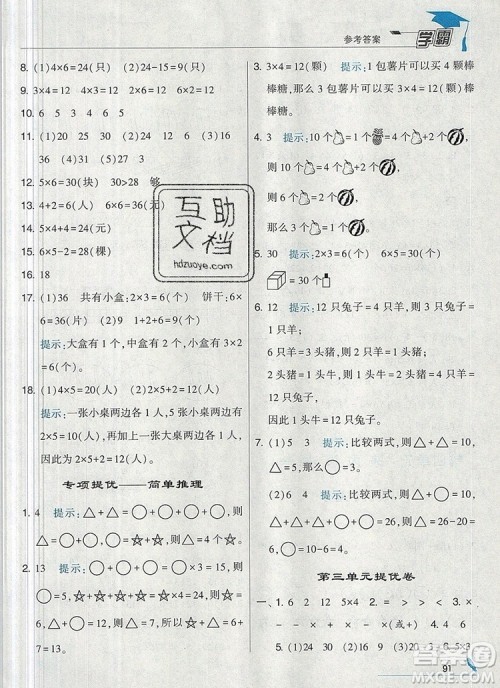 参考答案
学霸
8. (1)4×6=24(只) (2)24-15=9(只)
9. 3×4=12 2×6=12 6×2=12
10. 6 5 3 4 5 6
11. (1)20 30 (2)24 12 16 6 9
36 (3)35 (4)5 (5)27 3
12. 5×6=30(块) 30>28 够
13. 4+2=6(人) 6×6=36(元)
14. 5×4+4=24(人)
15. 6×5-2=28(棵)
16. 18
17. (1)36 共有小盒:2×3=6(个) 饼干:6×
6=36(片) (2)9 1+2+6=9(个)
提示:大盒有1个,中盒有2个,小盒有3×2
=6(个)。
18. (1)4×5=20(人) (2)2×5+2=12(人)
提示:一张小桌两边各1人,5张小桌两边各
5人,再加上一张大桌两边各1人,
因此为2×5+2=12(人)。
专项提优——简单推理
1. 4 提示:△+△=○+○+○+○,则
△=○+○,○=☆+☆,则△=☆+☆
+☆+☆。
2. 13 提示:○+○+○=○×3=15,则
○=5,☆+☆+○=☆+☆+5=17,则☆
+☆=12,则☆=6,△+☆=△+6=13,则△
=7=13。
3. 3×4=12(颗) 提示:1包薯片可以买4颗棒
棒糖,那么3包薯片可以买3×4=12(颗)
棒棒糖。
4. 3 提示:10个+1个=4个+2个,
则10个=4个+2个,
则6个=2个,
那么3个=1个。
5. 30 提示:2×3=6(个) 6×5=30(个)
=30个
6. 12 提示:12只兔子=4只羊,则3只兔子=
1只羊;
6只羊=2头猪,则3只羊=1头猪;
2头猪=1头牛,则6只羊=1头牛;
因此1头牛=12只兔子。
7. (1)5 3 提示:比较两式,则△+△=10,
△=5,那么○=3。
(2)6 4 提示:比较两式,则△+△+△+
○=26,△+○=10,则△+△=26-20=
6,○=10-6=4。
第三单元提优卷
一、1. 6 2 12 5×4 2. = > > < 3. ×
- - × - ×(或+) 4. 9
5. (1)16 19 (2)15 20 6. 5×3
91
互助
文档
hdzuoye.com
答案圈
MXQE.COM